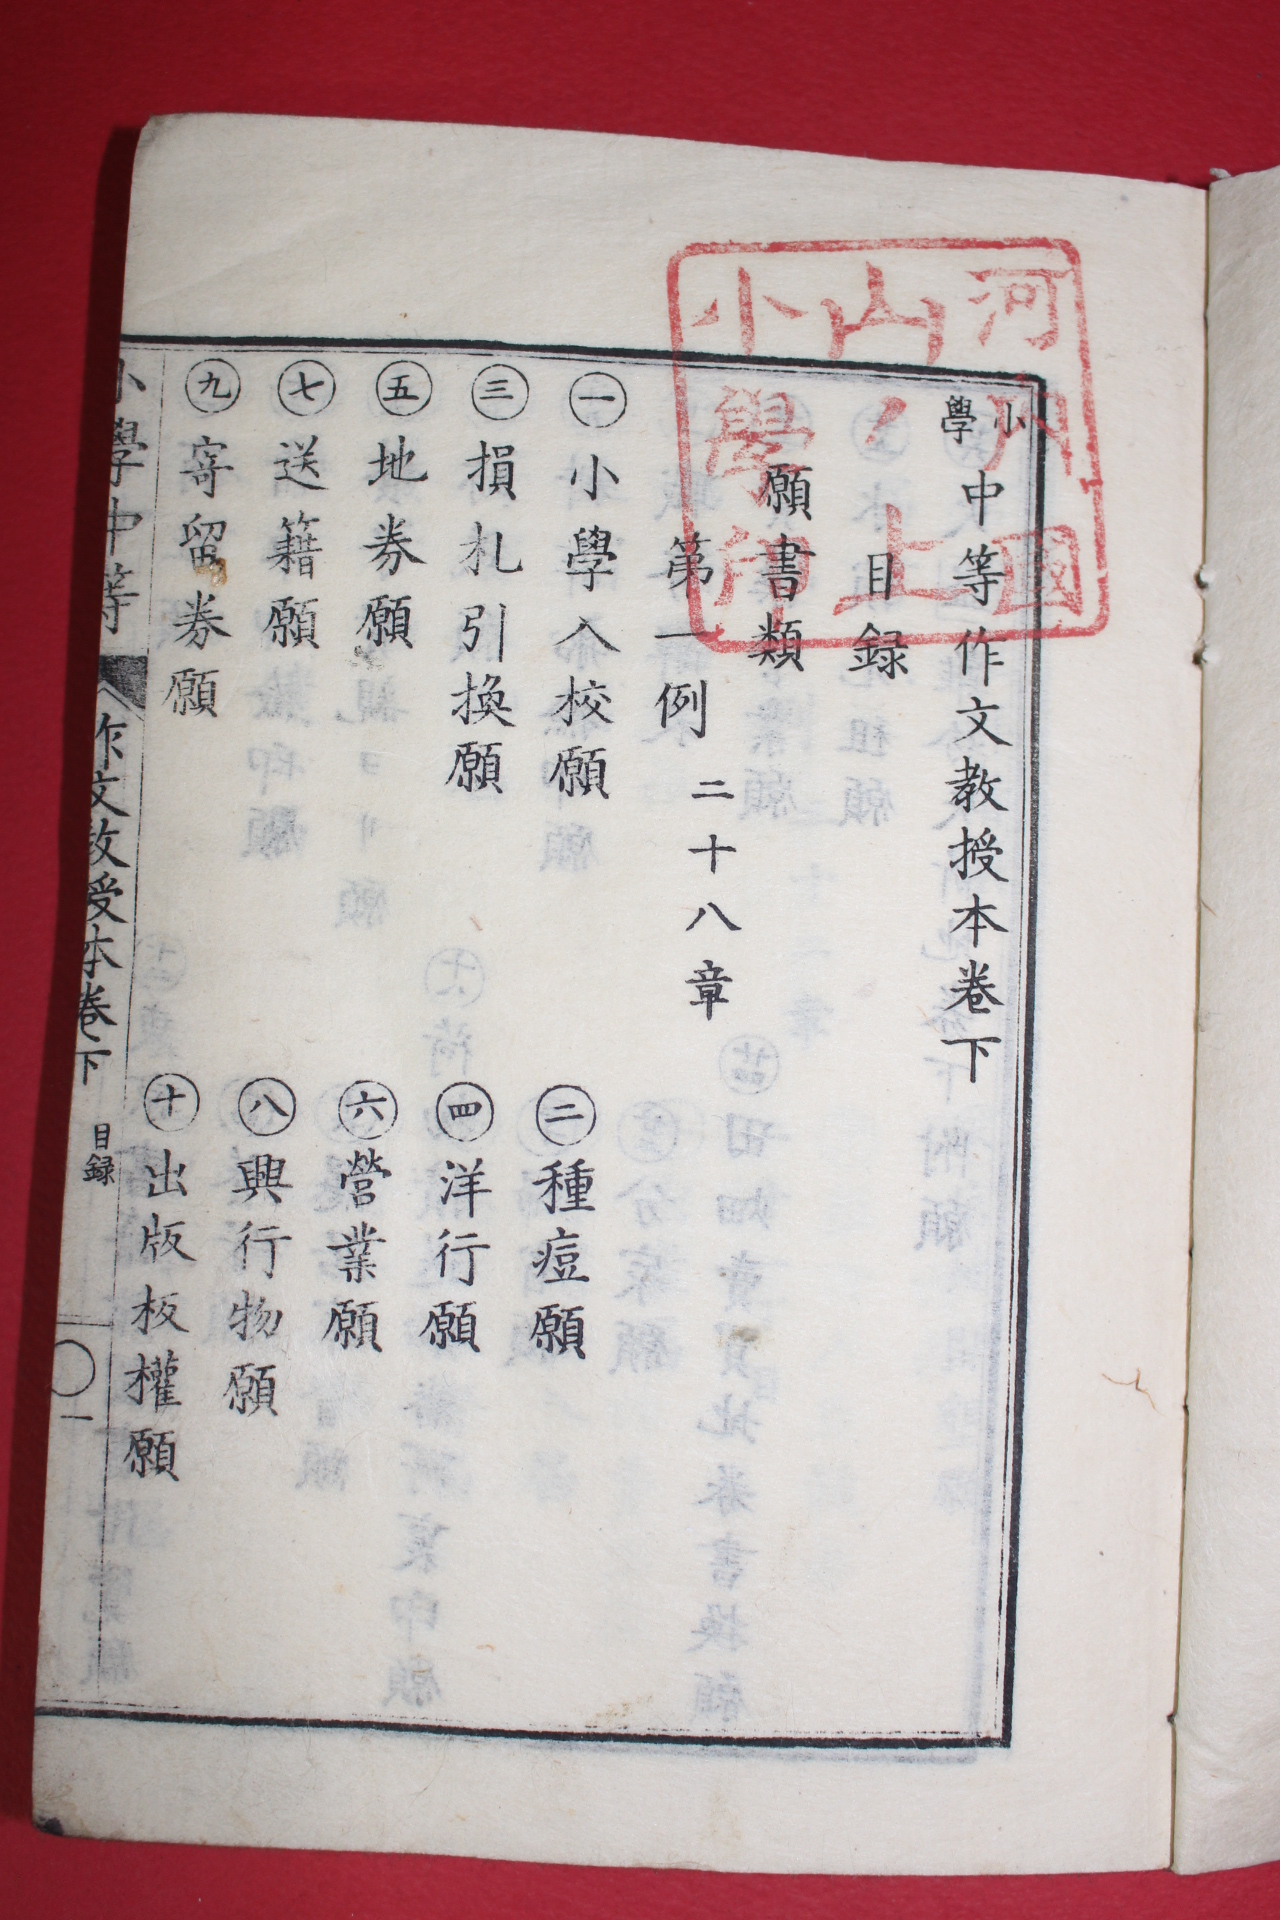 小學中等作文教授本卷下
目録
願書類
第一例 二十八章
㊀小學入校願
㊁種痘願
㊂損札引換願
㊃洋行願
㊄地券願
㊅營業願
㊆送籍願
㊇興行物願
㊈寄留券願
㊉出版板權願
小學中等 作文教授本卷下 目録 一
河内國
山ノ上
小學印